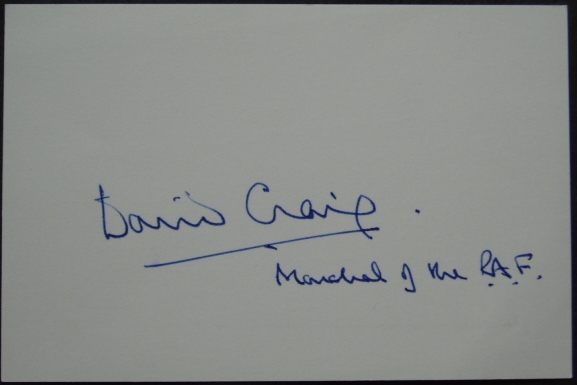 David Craig.
Marshal of the R.A.F.